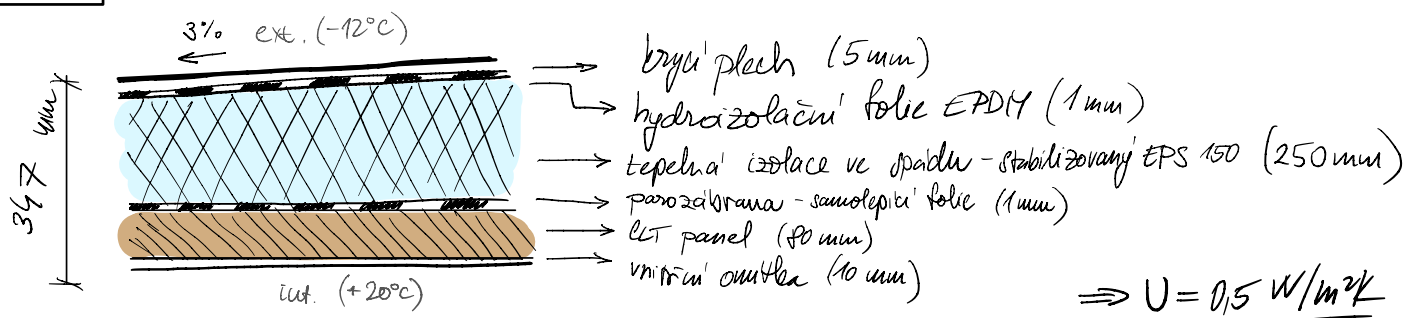 3% ext. (-12°C)
krycí plech (5mm)
hydroizolační folie EPDM (1mm)
tepelná izolace ve spádu - stabilizovaný EPS 150 (250mm)
parozábrana - samolepicí folie (1mm)
CLT panel (80mm)
vnitřní omítka (10mm)
347 mm
int. (+20°C)
⇒ U = 0,5 W/m²K